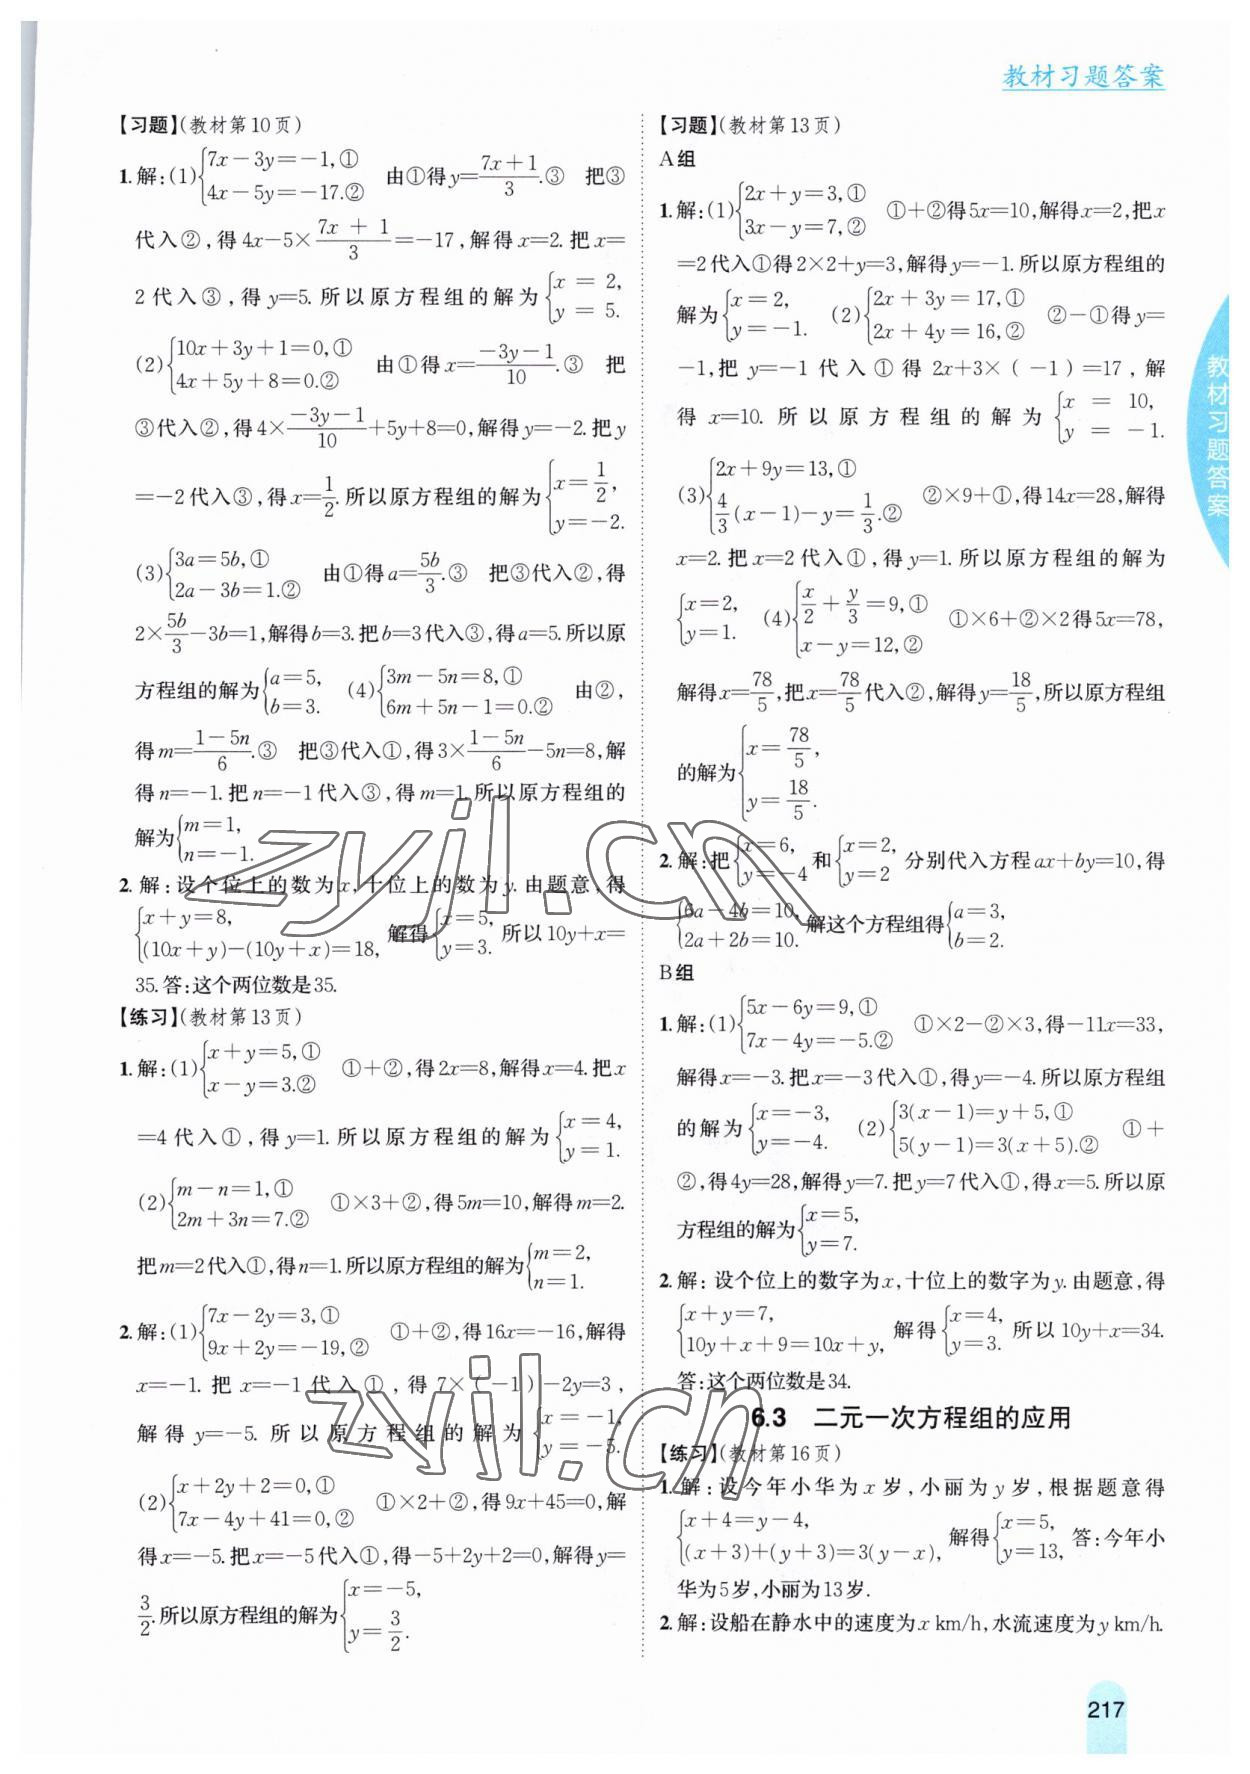 教材习题答案
【习题】(教材第10页)
1.解:(1){7x-3y=-1,① 4x-5y=-17.② 由①得y=(7x+1)/3.③ 把③
代入②,得4x-5×(7x+1)/3=-17,解得x=2.把x=
2代入③,得y=5.所以原方程组的解为{x=2, y=5.
(2){10x+3y+1=0,① 4x+5y+8=0.② 由①得x=(-3y-1)/10.③ 把
③代入②,得4×(-3y-1)/10+5y+8=0,解得y=-2.把y
=-2代入③,得x=1/2.所以原方程组的解为{x=1/2, y=-2.
(3){3a=5b,① 2a-3b=1.② 由①得a=5b/3.③ 把③代入②,得
2×5b/3-3b=1,解得b=3.把b=3代入③,得a=5.所以原
方程组的解为{a=5, b=3. (4){3m-5n=8,① 6m+5n-1=0.② 由②,
得m=(1-5n)/6.③ 把③代入①,得3×(1-5n)/6-5n=8,解
得n=-1.把n=-1代入③,得m=1.所以原方程组的
解为{m=1, n=-1.
2.解:设个位上的数为x,十位上的数为y.由题意,得
{x+y=8, (10x+y)-(10y+x)=18, 解得{x=5, y=3. 所以10y+x=
35.答:这个两位数是35.
【练习】(教材第13页)
1.解:(1){x+y=5,① x-y=3.② ①+②,得2x=8,解得x=4.把x
=4代入①,得y=1.所以原方程组的解为{x=4, y=1.
(2){m-n=1,① 2m+3n=7.② ①×3+②,得5m=10,解得m=2.
把m=2代入①,得n=1.所以原方程组的解为{m=2, n=1.
2.解:(1){7x-2y=3,① 9x+2y=-19,② ①+②,得16x=-16,解得
x=-1.把x=-1代入①,得7×(-1)-2y=3,
解得y=-5.所以原方程组的解为{x=-1, y=-5.
(2){x+2y+2=0,① 7x-4y+41=0,② ①×2+②,得9x+45=0,解
得x=-5.把x=-5代入①,得-5+2y+2=0,解得y=
3/2.所以原方程组的解为{x=-5, y=3/2.
【习题】(教材第13页)
A组
1.解:(1){2x+y=3,① 3x-y=7,② ①+②得5x=10,解得x=2,把x
=2代入①得2×2+y=3,解得y=-1.所以原方程组的
解为{x=2, y=-1. (2){2x+3y=17,① 2x+4y=16,② ②-①得y=
-1,把y=-1代入①得2x+3×(-1)=17,解
得x=10.所以原方程组的解为{x=10, y=-1.
(3){2x+9y=13,① 4/3(x-1)-y=1/3.② ②×9+①,得14x=28,解得
x=2.把x=2代入①,得y=1.所以原方程组的解为
{x=2, y=1. (4){x/2+y/3=9,① x-y=12,② ①×6+②×2得5x=78,
解得x=78/5,把x=78/5代入②,解得y=18/5,所以原方程组
的解为{x=78/5, y=18/5.
2.解:把{x=6, y=-4和{x=2, y=2分别代入方程ax+by=10,得
{6a-4b=10, 2a+2b=10.解这个方程组得{a=3, b=2.
B组
1.解:(1){5x-6y=9,① 7x-4y=-5.② ①×2-②×3,得-11x=33,
解得x=-3.把x=-3代入①,得y=-4.所以原方程组
的解为{x=-3, y=-4. (2){3(x-1)=y+5,① 5(y-1)=3(x+5).② ①+
②,得4y=28,解得y=7.把y=7代入①,得x=5.所以原
方程组的解为{x=5, y=7.
2.解:设个位上的数字为x,十位上的数字为y.由题意,得
{x+y=7, 10y+x+9=10x+y, 解得{x=4, y=3. 所以10y+x=34.
答:这个两位数是34.
6.3 二元一次方程组的应用
【练习】(教材第16页)
1.解:设今年小华为x岁,小丽为y岁,根据题意得
{x+4=y-4, (x+3)+(y+3)=3(y-x), 解得{x=5, y=13, 答:今年小
华为5岁,小丽为13岁.
2.解:设船在静水中的速度为x km/h,水流速度为y km/h.
教材习题答案
217
zyjl.cn
zyjl.cn